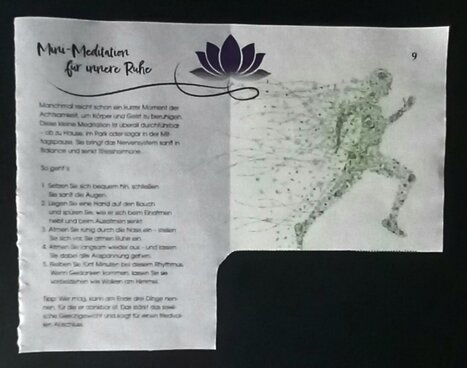 Mini-Meditation
für innere Ruhe
9
Manchmal reicht schon ein kurzer Moment der
Achtsamkeit, um Körper und Geist zu beruhigen.
Diese kleine Meditation ist überall durchführbar
- ob zu Hause, im Park oder sogar in der Mit-
tagspause. Sie bringt das Nervensystem sanft in
Balance und senkt Stresshormone.
So geht's
1. Setzen Sie sich bequem hin, schließen
Sie sanft die Augen.
2. Legen Sie eine Hand auf den Bauch
und spüren Sie, wie er sich beim Einatmen
hebt und beim Ausatmen senkt.
3. Atmen Sie ruhig durch die Nase ein - stellen
Sie sich vor, Sie atmen Ruhe ein.
4. Atmen Sie langsam wieder aus - und lassen
Sie dabei alle Anspannung gehen.
5. Bleiben Sie fünf Minuten bei diesem Rhythmus.
Wenn Gedanken kommen, lassen Sie sie
vorbeiziehen wie Wolken am Himmel.
Tipp: Wer mag, kann am Ende drei Dinge nen-
nen, für die er dankbar ist. Das stärkt das seeli-
sche Gleichgewicht und sorgt für einen friedvol-
len Abschluss.